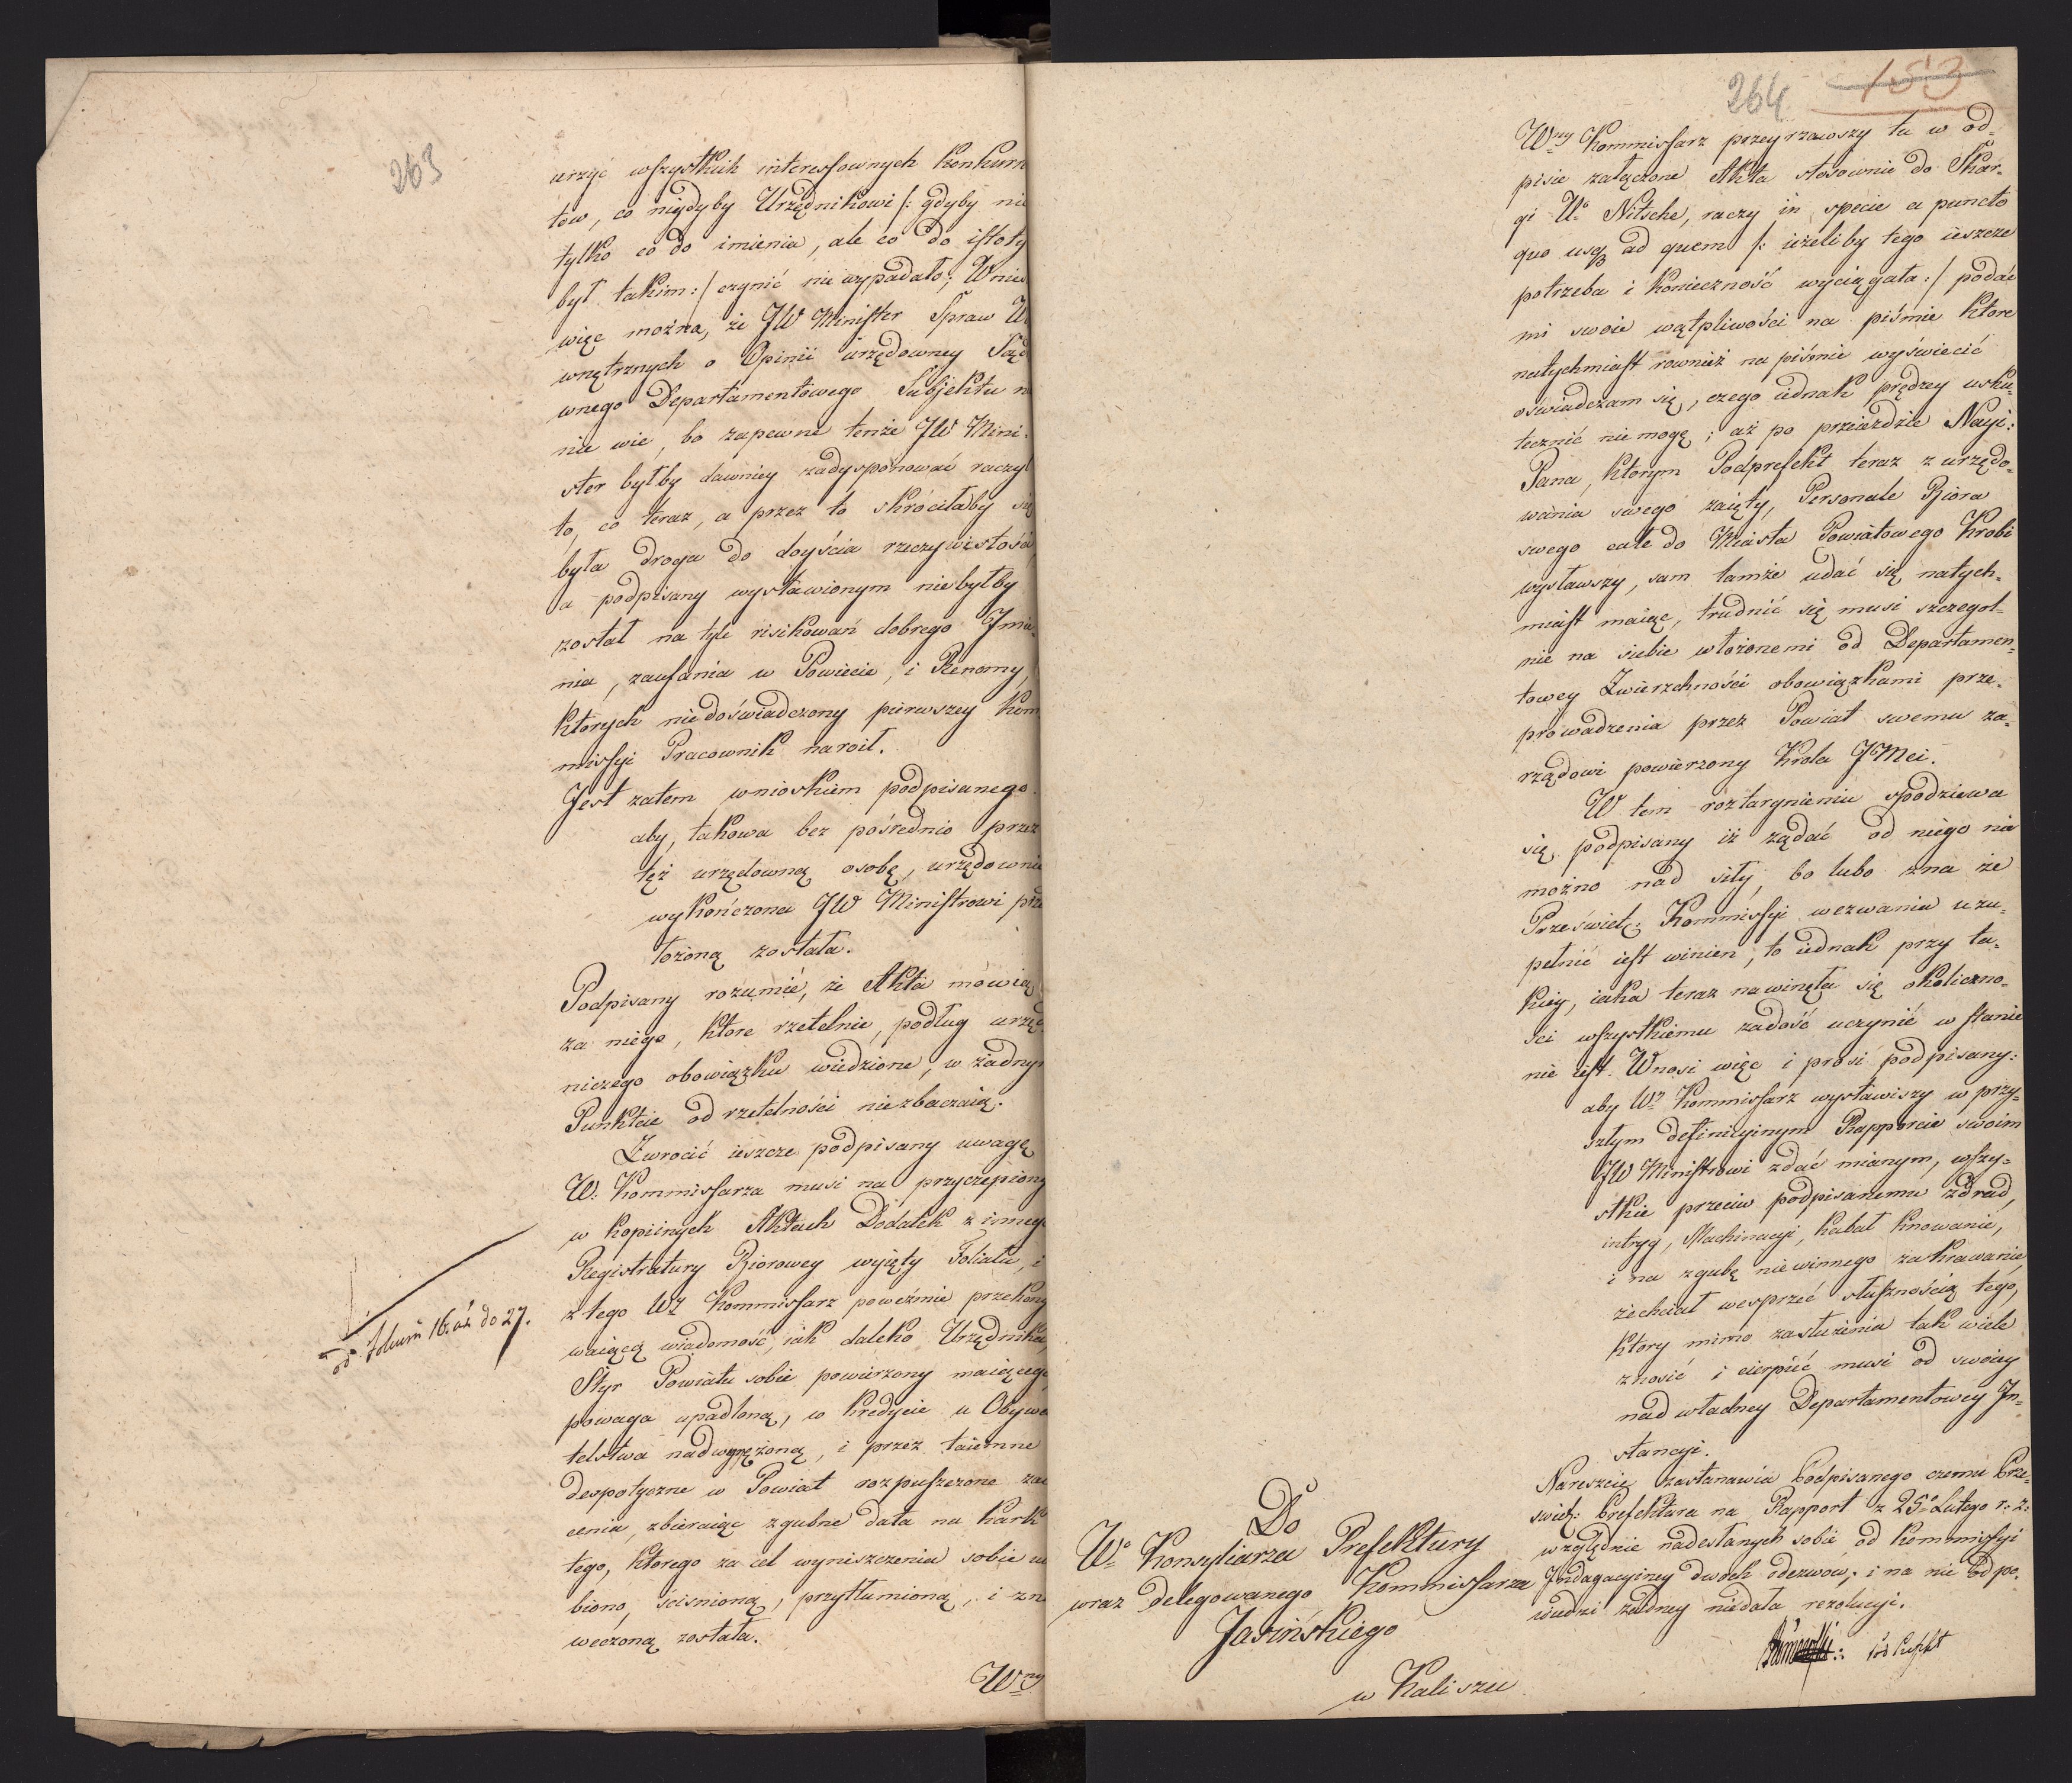 263
urzyć wszystkich interessownych Konkurn
tow, co nigdyby Urzędnikowi /: gdyby nie
tylko co do imienia, ale co do istoty
był takim :/ czynić nie wypadało; Wnieś
więc można, że JW Minister Spraw We
wnętrznych o Opinii urzędowney Sąd
wnego Departamentowego Subjektu n
nie wie, bo zapewne tenże JW Mini-
ster byłby dawniey zadysponować raczył
to, co teraz, a przez to skróciłaby się
była droga do doyścia rzeczywistości
a podpisany wystawionym niebyłby
został na tyle risikowań dobrego Jmie-
nia, zaufania w Powiecie, i Renomy,
ktorych niedoświadczony pierwszey Kom
missyi Pracownik naroił.
Jest zatem wnioskiem podpisanego
aby, takowa bez pośrednio przez
tęż urzędowną osobę, urzędownie
wykończona JW Ministrowi prze
łożoną została.
Podpisany rozumié, że Akta mówią
za niego, ktore rzetelnie, podług urzęd
niczego obowiązku wiedzione, w żadnym
Punkcie od rzetelności niezbaczaią.
Zwrocić ieszcze podpisany uwagę
W: Kommissarza musi na przyczepiony
w kopiinych Aktach Dodatek z innego
Registratury Biorowey wyięty Foliału, i
od folium 16. aż do 27.
z tego Wy Kommissarz poweźmie przekony
waiącą wiadomość, iak daleko Urzędnika,
Styr Powiatu sobie powierzony maiącego
powaga upadloną, w kredycie u Obywa
telstwa nadwyrężoną, i przez taiemne
despotyczne w Powiat rozpuszczone zal
cenia, zbieraiąc zgubne data na Kark
tego, ktorego za cel wyniszczenia sobie u
biono, ścisnioną, przytłumioną, i zni
weczoną została.
Wny
264 153
Wny Kommissarz przeyrzawszy tu w od-
pisie załączone Akta stosownie do Skar-
gi Uo Nitsche, raczy in specie a puncto
quo usq ad quem /: ieżeliby tego ieszcze
potrzeba i Konieczność wyciągała :/ podać
mi swoie wątpliwości na piśmie ktore
natychmiast rownież na piśmie wyświecić
oświadczam się, czego iednak prędzey usku-
tecznić nie mogę; aż po przeieździe Nayi:
Pana, ktorym Podprefekt teraz z urzędo-
wania swego zaięty, Personale Biora
swego całe do Miasta Powiatowego Krobi
wysławszy, sam tamże udać się natych-
miast maiąc, trudnić się musi szczegol-
nie na siebie włożonemi od Departamen-
towey Zwierzchności obowiązkami prze-
prowadzenia przez Powiat swemu za-
rządowi powierzony Krola JMci.
W tem roztargnieniu spodziewa
się podpisany iż żądać od niego nie
możno nad siły, bo lubo zna że
Prześwietn: Kommissyi wezwania uzu-
pełnić iest winien, to iednak przy ta-
kiey, iaka teraz nawinęła się okoliczno-
ści wszystkiemu zadość uczynić w stanie
nie iest. Wnosi więc i prosi podpisany:
aby Wy Kommissarz wystawiszy w przy-
szłym definicyinym Rapporcie swoim
JW Ministrowi zdać mianym, wszy-
stkie przeciw podpisanemu zdrad,
intryg, Machinacyi, Kabał knowanie,
i na zgubę niewinnego zakrawanie
zechciał wesprzeć słusznością tego,
ktory mimo zasłużenia tak wiele
znosić i cierpieć musi od swoiey
nad władney Departamentowey In-
stancyi.
Nareszcie zastanawia Podpisanego czemu Prze-
święt: Prefektura na Rapport z 25o Lutego r: z:
względnie nadesłanych sobie od Kommissyi
Indagacyiney dwoch odezwow, i na nie odpo-
wiedzi żadney niedała rezolucyi.
Do
Wo Konsyliarza Prefektury
wraz Delegowanego Kommissarza
Jasińskiego
w Kaliszu